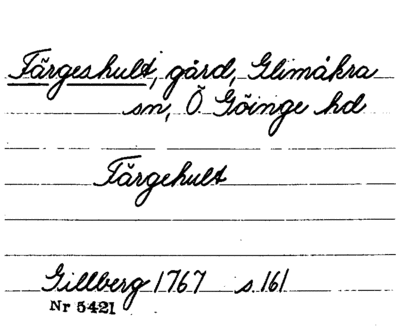 Färgeshult, gård, Glimåkra
sn, Ö. Göinge hd
Färgehult
Gillberg 1767 s. 161
Nr 5421